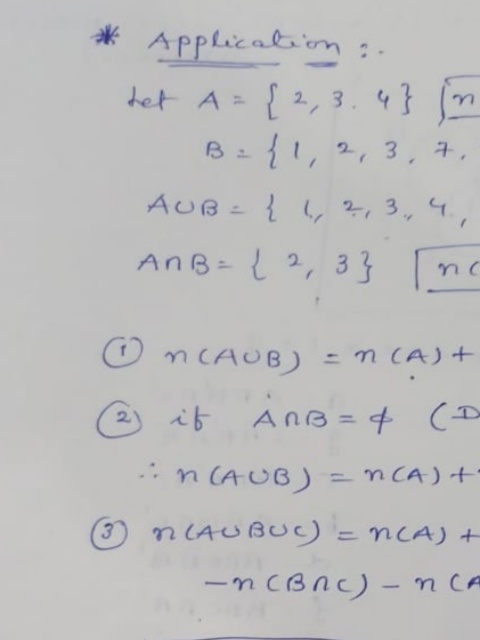 * Application :.
Let A = { 2, 3. 4} [n
B = { 1, 2, 3, 7.
A∪B = { 1, 2, 3, 4,
A∩B = { 2, 3} [n(
① n(A∪B) = n(A) +
② if A∩B = ϕ (D
∴ n(A∪B) = n(A) +
③ n(A∪B∪C) = n(A) +
-n(B∩C) - n(A